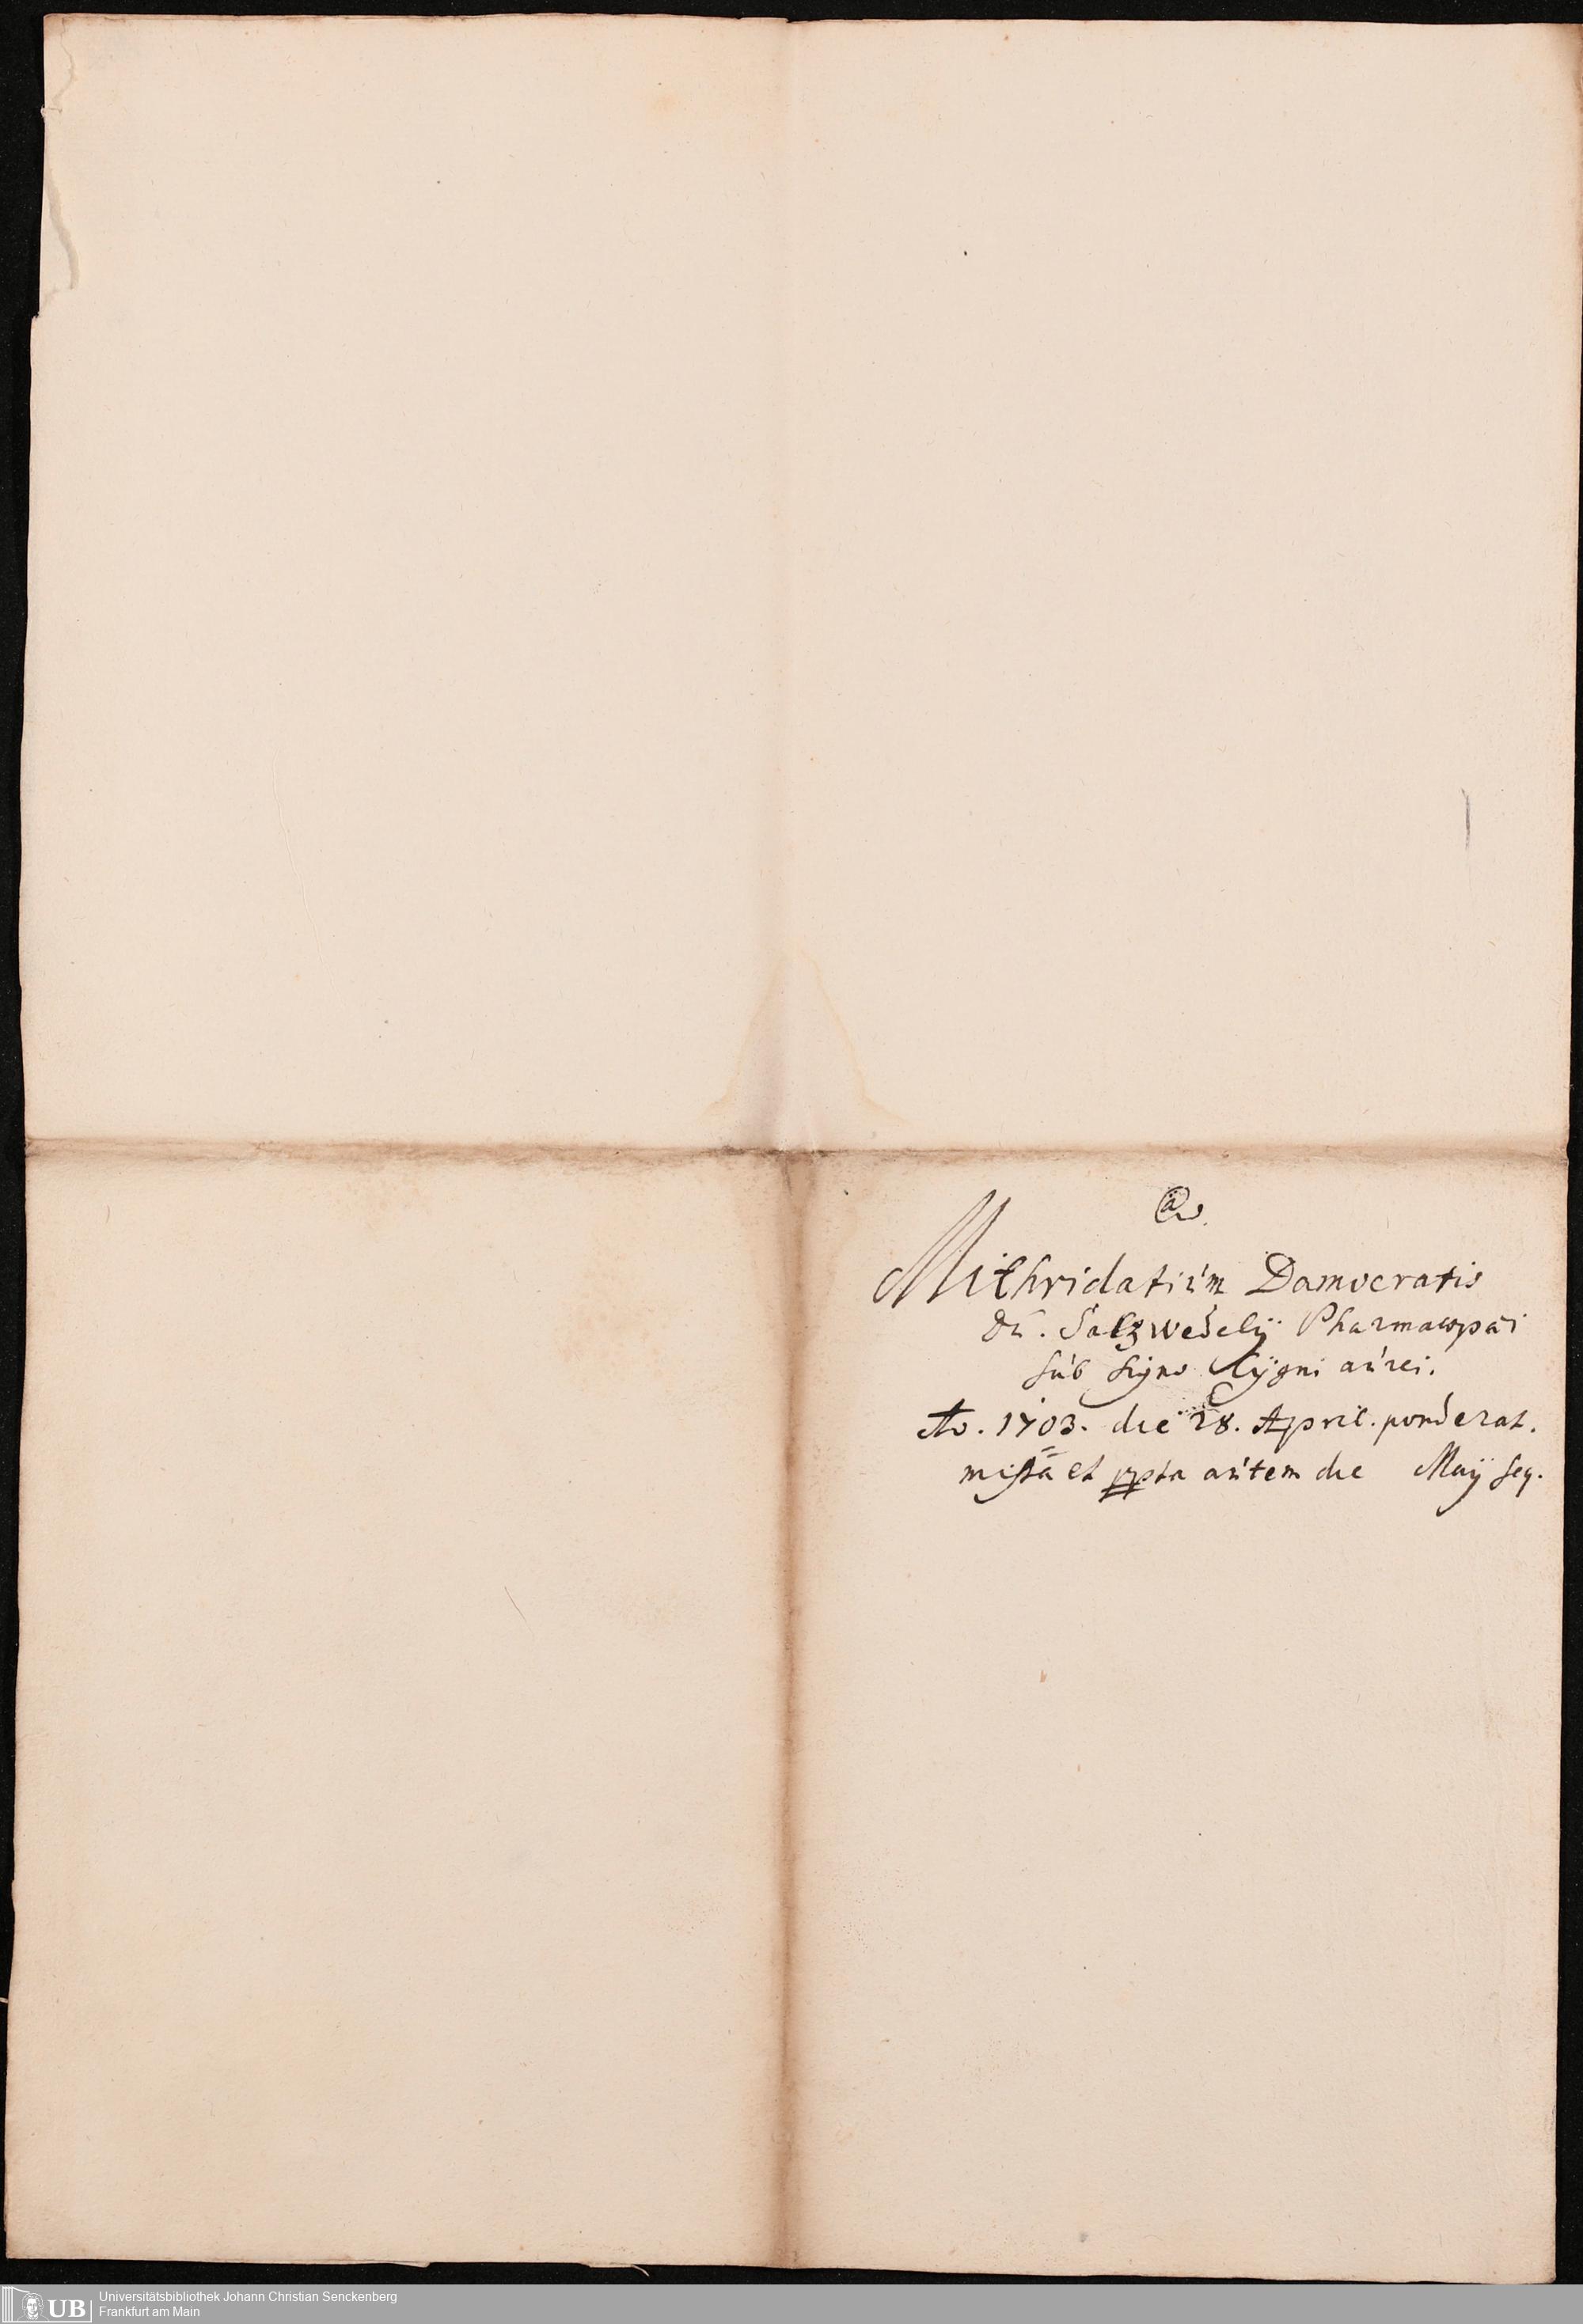 Mithridatium Damocratis
Dn. Salzwedelÿ Pharmacopæi
sub signo Cÿgni aurei.
Ao. 1703. die 28. April. ponderat.
mista et ppta autem die Maÿ seq.
UB
Universitätsbibliothek Johann Christian Senckenberg
Frankfurt am Main